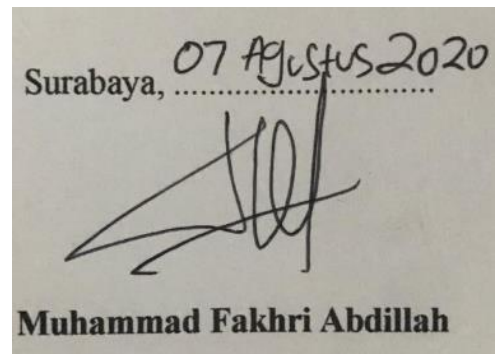 Surabaya, 07 Agustus 2020
Muhammad Fakhri Abdillah